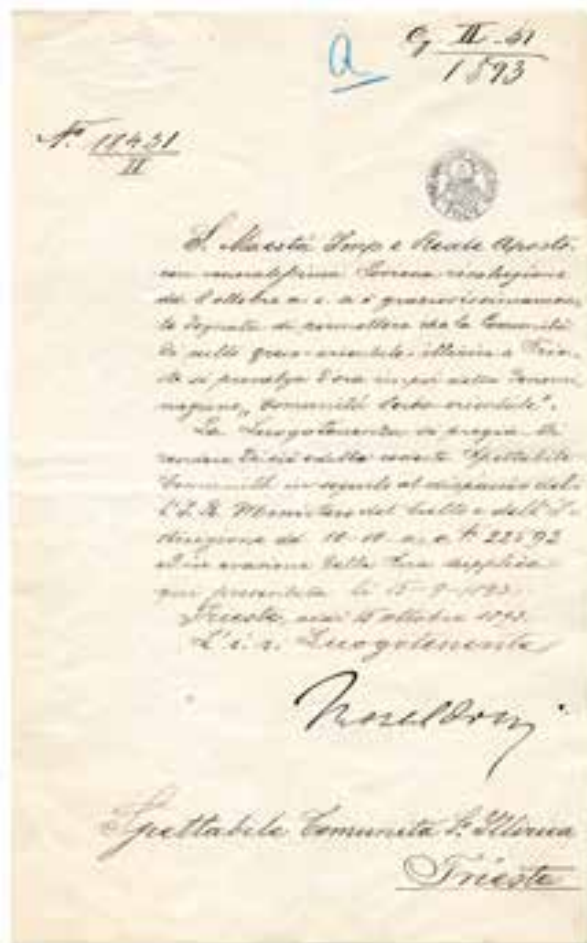 a
II-51
1893
N. 18451
II
S. Maestà Imp. e Reale Aposto-
con
del 8 ottobre a. c. si è graziosissimamen-
te degnata di permettere che la Comunità
di culto greco-orientale-illirica a Trie-
ste si prevalga d'ora in poi della denomi-
nazione „Comunità Serbo-orientale".
La Luogotenenza si pregia di
rendere di ciò edotta codesta Spettabile
Comunità in seguito al dispaccio dell'
I. R. Ministero del Culto e dell'I-
struzione dd 10-10 a. c. N. 22592
ed in evasione della Sua supplica
qui presentata li 15-9-1893.
Trieste, 15 ottobre 1893.
L'i. r. Luogotenente
Spettabile Comunità S. Illirica
Trieste